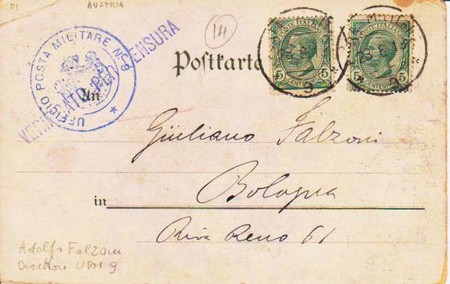 AUSTRIA
14
UFFICIO POSTA MILITARE No 9
VERIFICATO PER CENSURA
Postkarte
5 5
5
An
Giuliano Falzoni
in Bologna
Riva Reno 61
Adolfo Falzoni
Direttore UPM 9